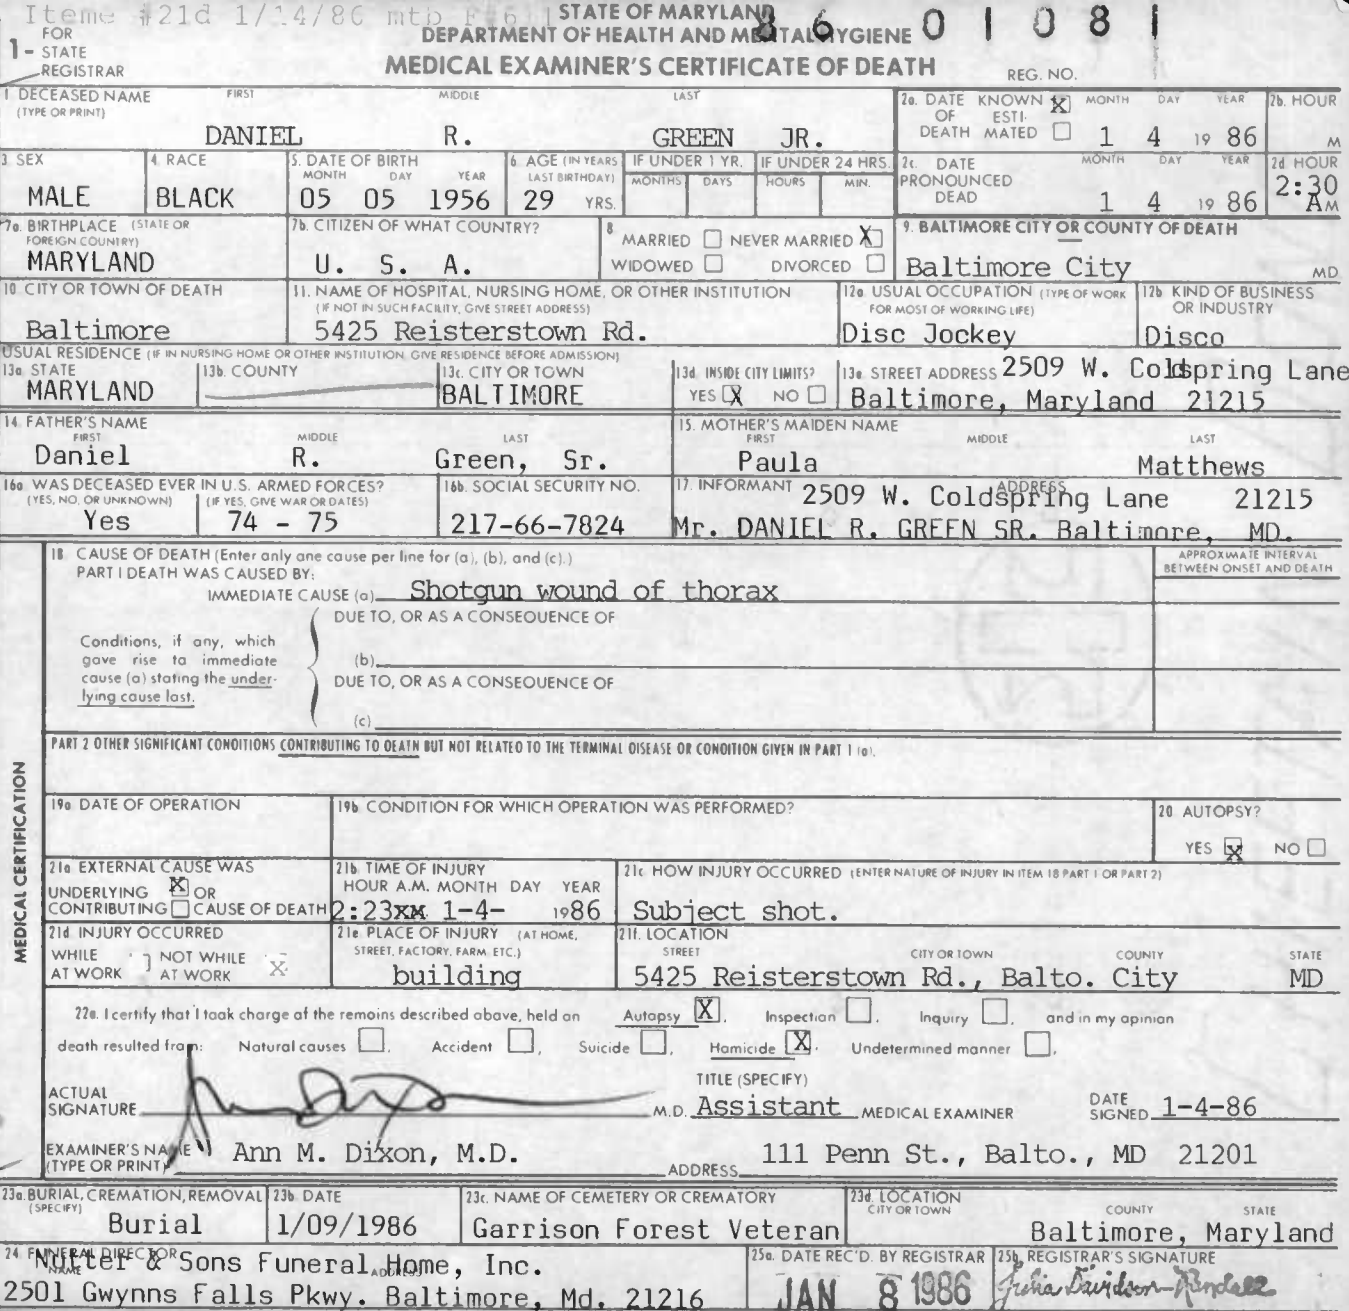 Items #21d 1/14/86 mtb
STATE OF MARYLAND
DEPARTMENT OF HEALTH AND MENTAL HYGIENE
86 01081
1- FOR STATE REGISTRAR
MEDICAL EXAMINER'S CERTIFICATE OF DEATH
REG. NO.
1 DECEASED NAME (TYPE OR PRINT) FIRST MIDDLE LAST
DANIEL R. GREEN JR.
2a. DATE OF DEATH KNOWN X ESTIMATED MONTH DAY YEAR
1 4 19 86
2b. HOUR M
3 SEX
MALE
4. RACE
BLACK
5. DATE OF BIRTH MONTH DAY YEAR
05 05 1956
6. AGE (IN YEARS LAST BIRTHDAY)
29 YRS.
IF UNDER 1 YR. MONTHS DAYS
IF UNDER 24 HRS. HOURS MIN.
2c. DATE PRONOUNCED DEAD MONTH DAY YEAR
1 4 19 86
2d HOUR
2:30 AM
7a. BIRTHPLACE (STATE OR FOREIGN COUNTRY)
MARYLAND
7b. CITIZEN OF WHAT COUNTRY?
U. S. A.
8 MARRIED NEVER MARRIED X
WIDOWED DIVORCED
9. BALTIMORE CITY OR COUNTY OF DEATH
Baltimore City MD
10. CITY OR TOWN OF DEATH
Baltimore
11. NAME OF HOSPITAL, NURSING HOME, OR OTHER INSTITUTION
(IF NOT IN SUCH FACILITY, GIVE STREET ADDRESS)
5425 Reisterstown Rd.
12a. USUAL OCCUPATION (TYPE OF WORK FOR MOST OF WORKING LIFE)
Disc Jockey
12b. KIND OF BUSINESS OR INDUSTRY
Disco
USUAL RESIDENCE (IF IN NURSING HOME OR OTHER INSTITUTION, GIVE RESIDENCE BEFORE ADMISSION)
13a. STATE
MARYLAND
13b. COUNTY
13c. CITY OR TOWN
BALTIMORE
13d. INSIDE CITY LIMITS?
YES X NO
13e. STREET ADDRESS 2509 W. Coldspring Lane
Baltimore, Maryland 21215
14. FATHER'S NAME FIRST MIDDLE LAST
Daniel R. Green, Sr.
15. MOTHER'S MAIDEN NAME FIRST MIDDLE LAST
Paula Matthews
16a. WAS DECEASED EVER IN U.S. ARMED FORCES?
(YES, NO, OR UNKNOWN) (IF YES, GIVE WAR OR DATES)
Yes 74 - 75
16b. SOCIAL SECURITY NO.
217-66-7824
17. INFORMANT ADDRESS
2509 W. Coldspring Lane 21215
Mr. DANIEL R. GREEN SR. Baltimore, MD.
MEDICAL CERTIFICATION
18. CAUSE OF DEATH (Enter only one cause per line for (a), (b), and (c).)
APPROXIMATE INTERVAL BETWEEN ONSET AND DEATH
PART I DEATH WAS CAUSED BY:
IMMEDIATE CAUSE (a) Shotgun wound of thorax
DUE TO, OR AS A CONSEQUENCE OF
Conditions, if any, which gave rise to immediate cause (a) stating the underlying cause last.
(b)
DUE TO, OR AS A CONSEQUENCE OF
(c)
PART 2 OTHER SIGNIFICANT CONDITIONS CONTRIBUTING TO DEATH BUT NOT RELATED TO THE TERMINAL DISEASE OR CONDITION GIVEN IN PART 1 (a).
19a. DATE OF OPERATION
19b. CONDITION FOR WHICH OPERATION WAS PERFORMED?
20 AUTOPSY?
YES X NO
21a. EXTERNAL CAUSE WAS
UNDERLYING X OR
CONTRIBUTING CAUSE OF DEATH
21b. TIME OF INJURY
HOUR A.M. MONTH DAY YEAR
2:23 1-4- 1986
21c. HOW INJURY OCCURRED (ENTER NATURE OF INJURY IN ITEM 18 PART 1 OR PART 2)
Subject shot.
21d. INJURY OCCURRED
WHILE AT WORK NOT WHILE AT WORK X
21e. PLACE OF INJURY (AT HOME, STREET, FACTORY, FARM, ETC.)
building
21f. LOCATION STREET CITY OR TOWN COUNTY STATE
5425 Reisterstown Rd., Balto. City MD
22a. I certify that I took charge of the remains described above, held an Autopsy X, Inspection, Inquiry, and in my opinion
death resulted from: Natural causes, Accident, Suicide, Homicide X. Undetermined manner.
ACTUAL SIGNATURE M.D.
TITLE (SPECIFY)
Assistant MEDICAL EXAMINER
DATE SIGNED 1-4-86
EXAMINER'S NAME (TYPE OR PRINT) Ann M. Dixon, M.D.
ADDRESS 111 Penn St., Balto., MD 21201
23a. BURIAL, CREMATION, REMOVAL (SPECIFY)
Burial
23b. DATE
1/09/1986
23c. NAME OF CEMETERY OR CREMATORY
Garrison Forest Veteran
23d. LOCATION CITY OR TOWN COUNTY STATE
Baltimore, Maryland
24. FUNERAL DIRECTOR NAME ADDRESS
Nutter & Sons Funeral Home, Inc.
2501 Gwynns Falls Pkwy. Baltimore, Md. 21216
25a. DATE REC'D. BY REGISTRAR
JAN 8 1986
25b. REGISTRAR'S SIGNATURE
Julia Davidson-Randall